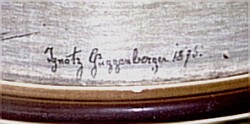 Ignatz Guggenberger 1875.